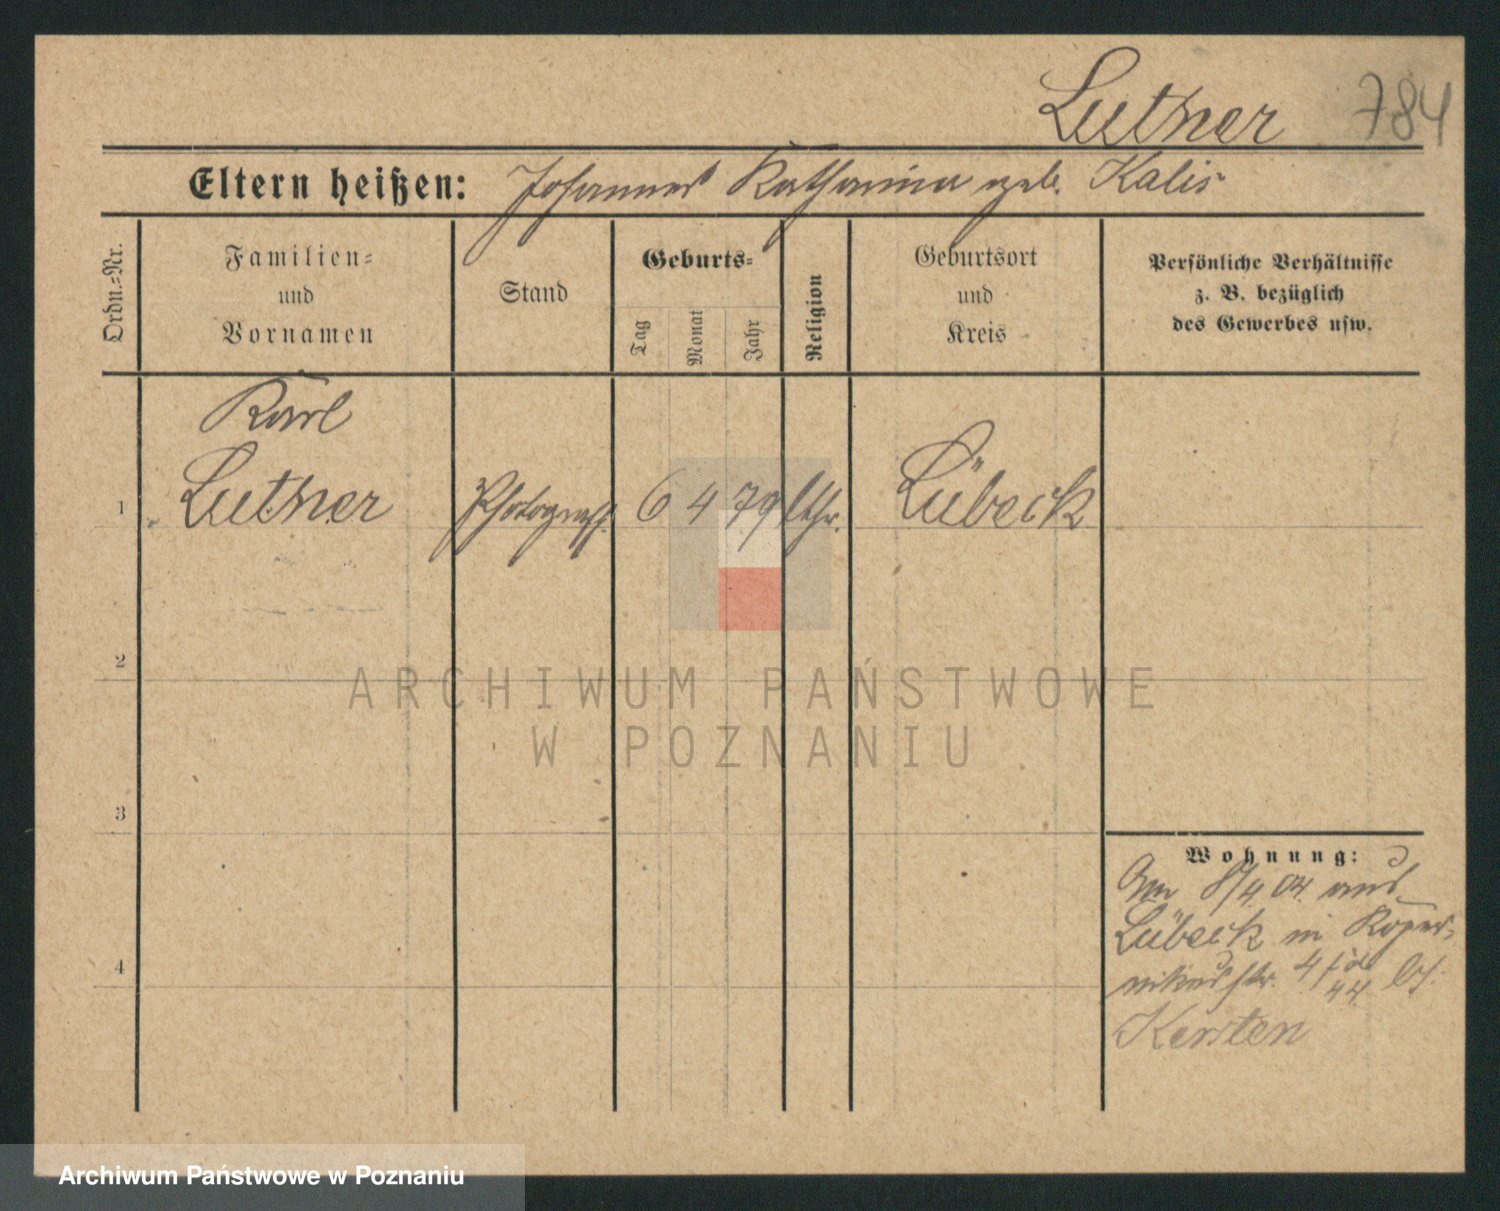 Lutner 784
Eltern heißen: Johannes Katharina geb. Kalis
Ordn.-Nr.
Familien-
und
Vornamen
Stand
Geburts-
Tag
Monat
Jahr
Religion
Geburtsort
und
Kreis
Persönliche Verhältnisse
z. B. bezüglich
des Gewerbes usw.
Karl
1 Lutner Photograph 6 4 79 lthr. Lübeck
2
3
4
Wohnung:
Am 8/4 04 aus
Lübeck in Koper-
nikusstr. 4 b/
Kersten
ARCHIWUM PAŃSTWOWE
W POZNANIU
Archiwum Państwowe w Poznaniu